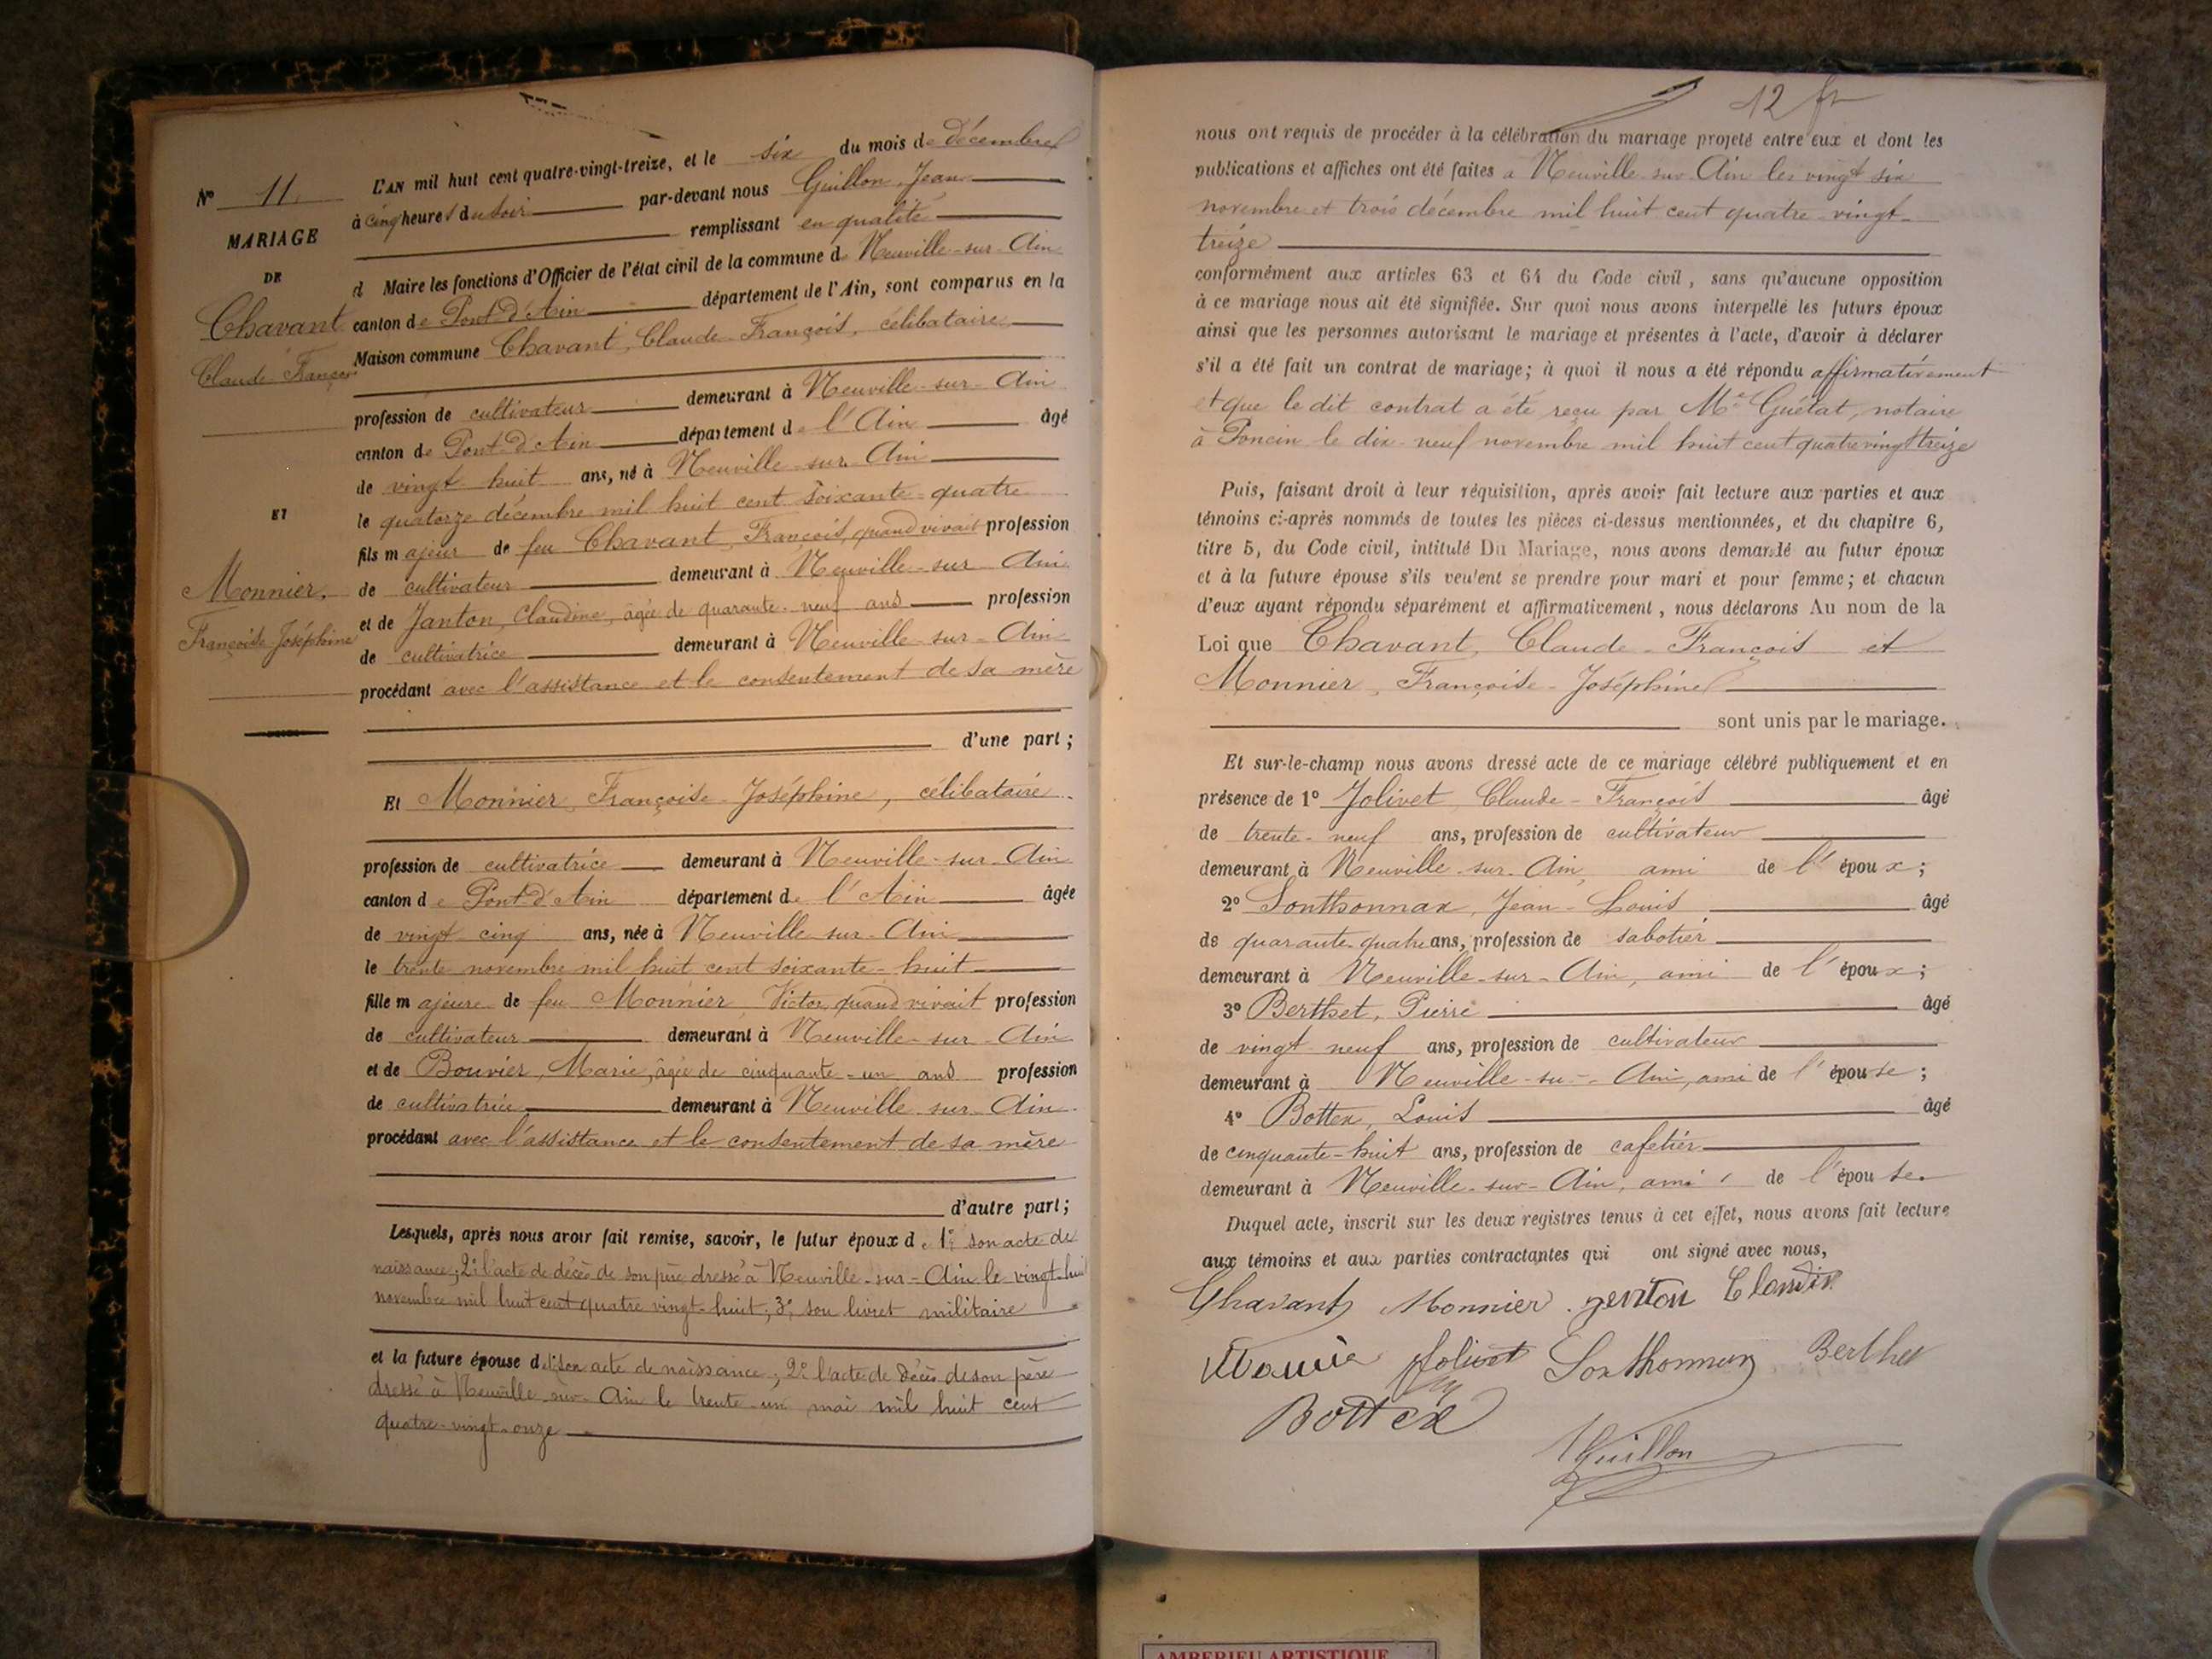 N° 11.
MARIAGE
DE
Chavant
Claude François
ET
Monnier,
Françoise-Joséphine
L'AN mil huit cent quatre-vingt-treize, et le six du mois de décembre
à cinq heures du soir par-devant nous Guillon, Jean
remplissant en qualité
d Maire les fonctions d'Officier de l'état civil de la commune de Neuville-sur-Ain
canton de Pont-d'Ain département de l'Ain, sont comparus en la
Maison commune Chavant, Claude-François, célibataire
profession de cultivateur demeurant à Neuville-sur-Ain
canton de Pont-d'Ain département de l'Ain âgé
de vingt huit ans, né à Neuville-sur-Ain
le quatorze décembre mil huit cent soixante-quatre
fils majeur de feu Chavant, François, quand vivait profession
de cultivateur demeurant à Neuville-sur-Ain
et de Janton, Claudine, âgée de quarante-neuf ans profession
de cultivatrice demeurant à Neuville-sur-Ain
procédant avec l'assistance et le consentement de sa mère
d'une part;
Et Monnier, Françoise-Joséphine, célibataire
profession de cultivatrice demeurant à Neuville-sur-Ain
canton de Pont-d'Ain département de l'Ain âgée
de vingt-cinq ans, née à Neuville-sur-Ain
le trente novembre mil huit cent soixante-huit
fille majeure de feu Monnier, Victor, quand vivait profession
de cultivateur demeurant à Neuville-sur-Ain
et de Bouvier, Marie, âgée de cinquante-un ans profession
de cultivatrice demeurant à Neuville-sur-Ain
procédant avec l'assistance et le consentement de sa mère
d'autre part;
Lesquels, après nous avoir fait remise, savoir, le futur époux de 1° son acte de
naissance; 2° l'acte de décès de son père dressé à Neuville-sur-Ain le vingt-huit
novembre mil huit cent quatre vingt-huit; 3° son livret militaire
et la future épouse de 1° son acte de naissance; 2° l'acte de décès de son père
dressé à Neuville-sur-Ain le trente-un mai mil huit cent
quatre-vingt-onze
12 fr
nous ont requis de procéder à la célébration du mariage projeté entre eux et dont les
publications et affiches ont été faites à Neuville-sur-Ain les vingt six
novembre et trois décembre mil huit cent quatre-vingt-
treize
conformément aux articles 63 et 64 du Code civil, sans qu'aucune opposition
à ce mariage nous ait été signifiée. Sur quoi nous avons interpellé les futurs époux
ainsi que les personnes autorisant le mariage et présentes à l'acte, d'avoir à déclarer
s'il a été fait un contrat de mariage; à quoi il nous a été répondu affirmativement
et que le dit contrat a été reçu par Me Guétat, notaire
à Poncin le dix-neuf novembre mil huit cent quatrevingt treize
Puis, faisant droit à leur réquisition, après avoir fait lecture aux parties et aux
témoins ci-après nommés de toutes les pièces ci-dessus mentionnées, et du chapitre 6,
titre 5, du Code civil, intitulé Du Mariage, nous avons demandé au futur époux
et à la future épouse s'ils veulent se prendre pour mari et pour femme; et chacun
d'eux ayant répondu séparément et affirmativement, nous déclarons Au nom de la
Loi que Chavant, Claude-François et
Monnier, Françoise-Joséphine
sont unis par le mariage.
Et sur-le-champ nous avons dressé acte de ce mariage célébré publiquement et en
présence de 1° Jolivet, Claude-François âgé
de trente-neuf ans, profession de cultivateur
demeurant à Neuville-sur-Ain, ami de l'époux;
2° Sonthonnax, Jean-Louis âgé
de quarante-quatre ans, profession de sabotier
demeurant à Neuville-sur-Ain, ami de l'époux;
3° Berthet, Pierre âgé
de vingt-neuf ans, profession de cultivateur
demeurant à Neuville-sur-Ain, ami de l'épouse;
4° Bottex, Louis âgé
de cinquante-huit ans, profession de cafetier
demeurant à Neuville-sur-Ain, ami de l'épouse.
Duquel acte, inscrit sur les deux registres tenus à cet effet, nous avons fait lecture
aux témoins et aux parties contractantes qui ont signé avec nous,
Chavant Monnier genton Clandix
Jolivet Sonthonnax Berthet
Bottex
Guillon
AMBERIEU ARTISTIQUE